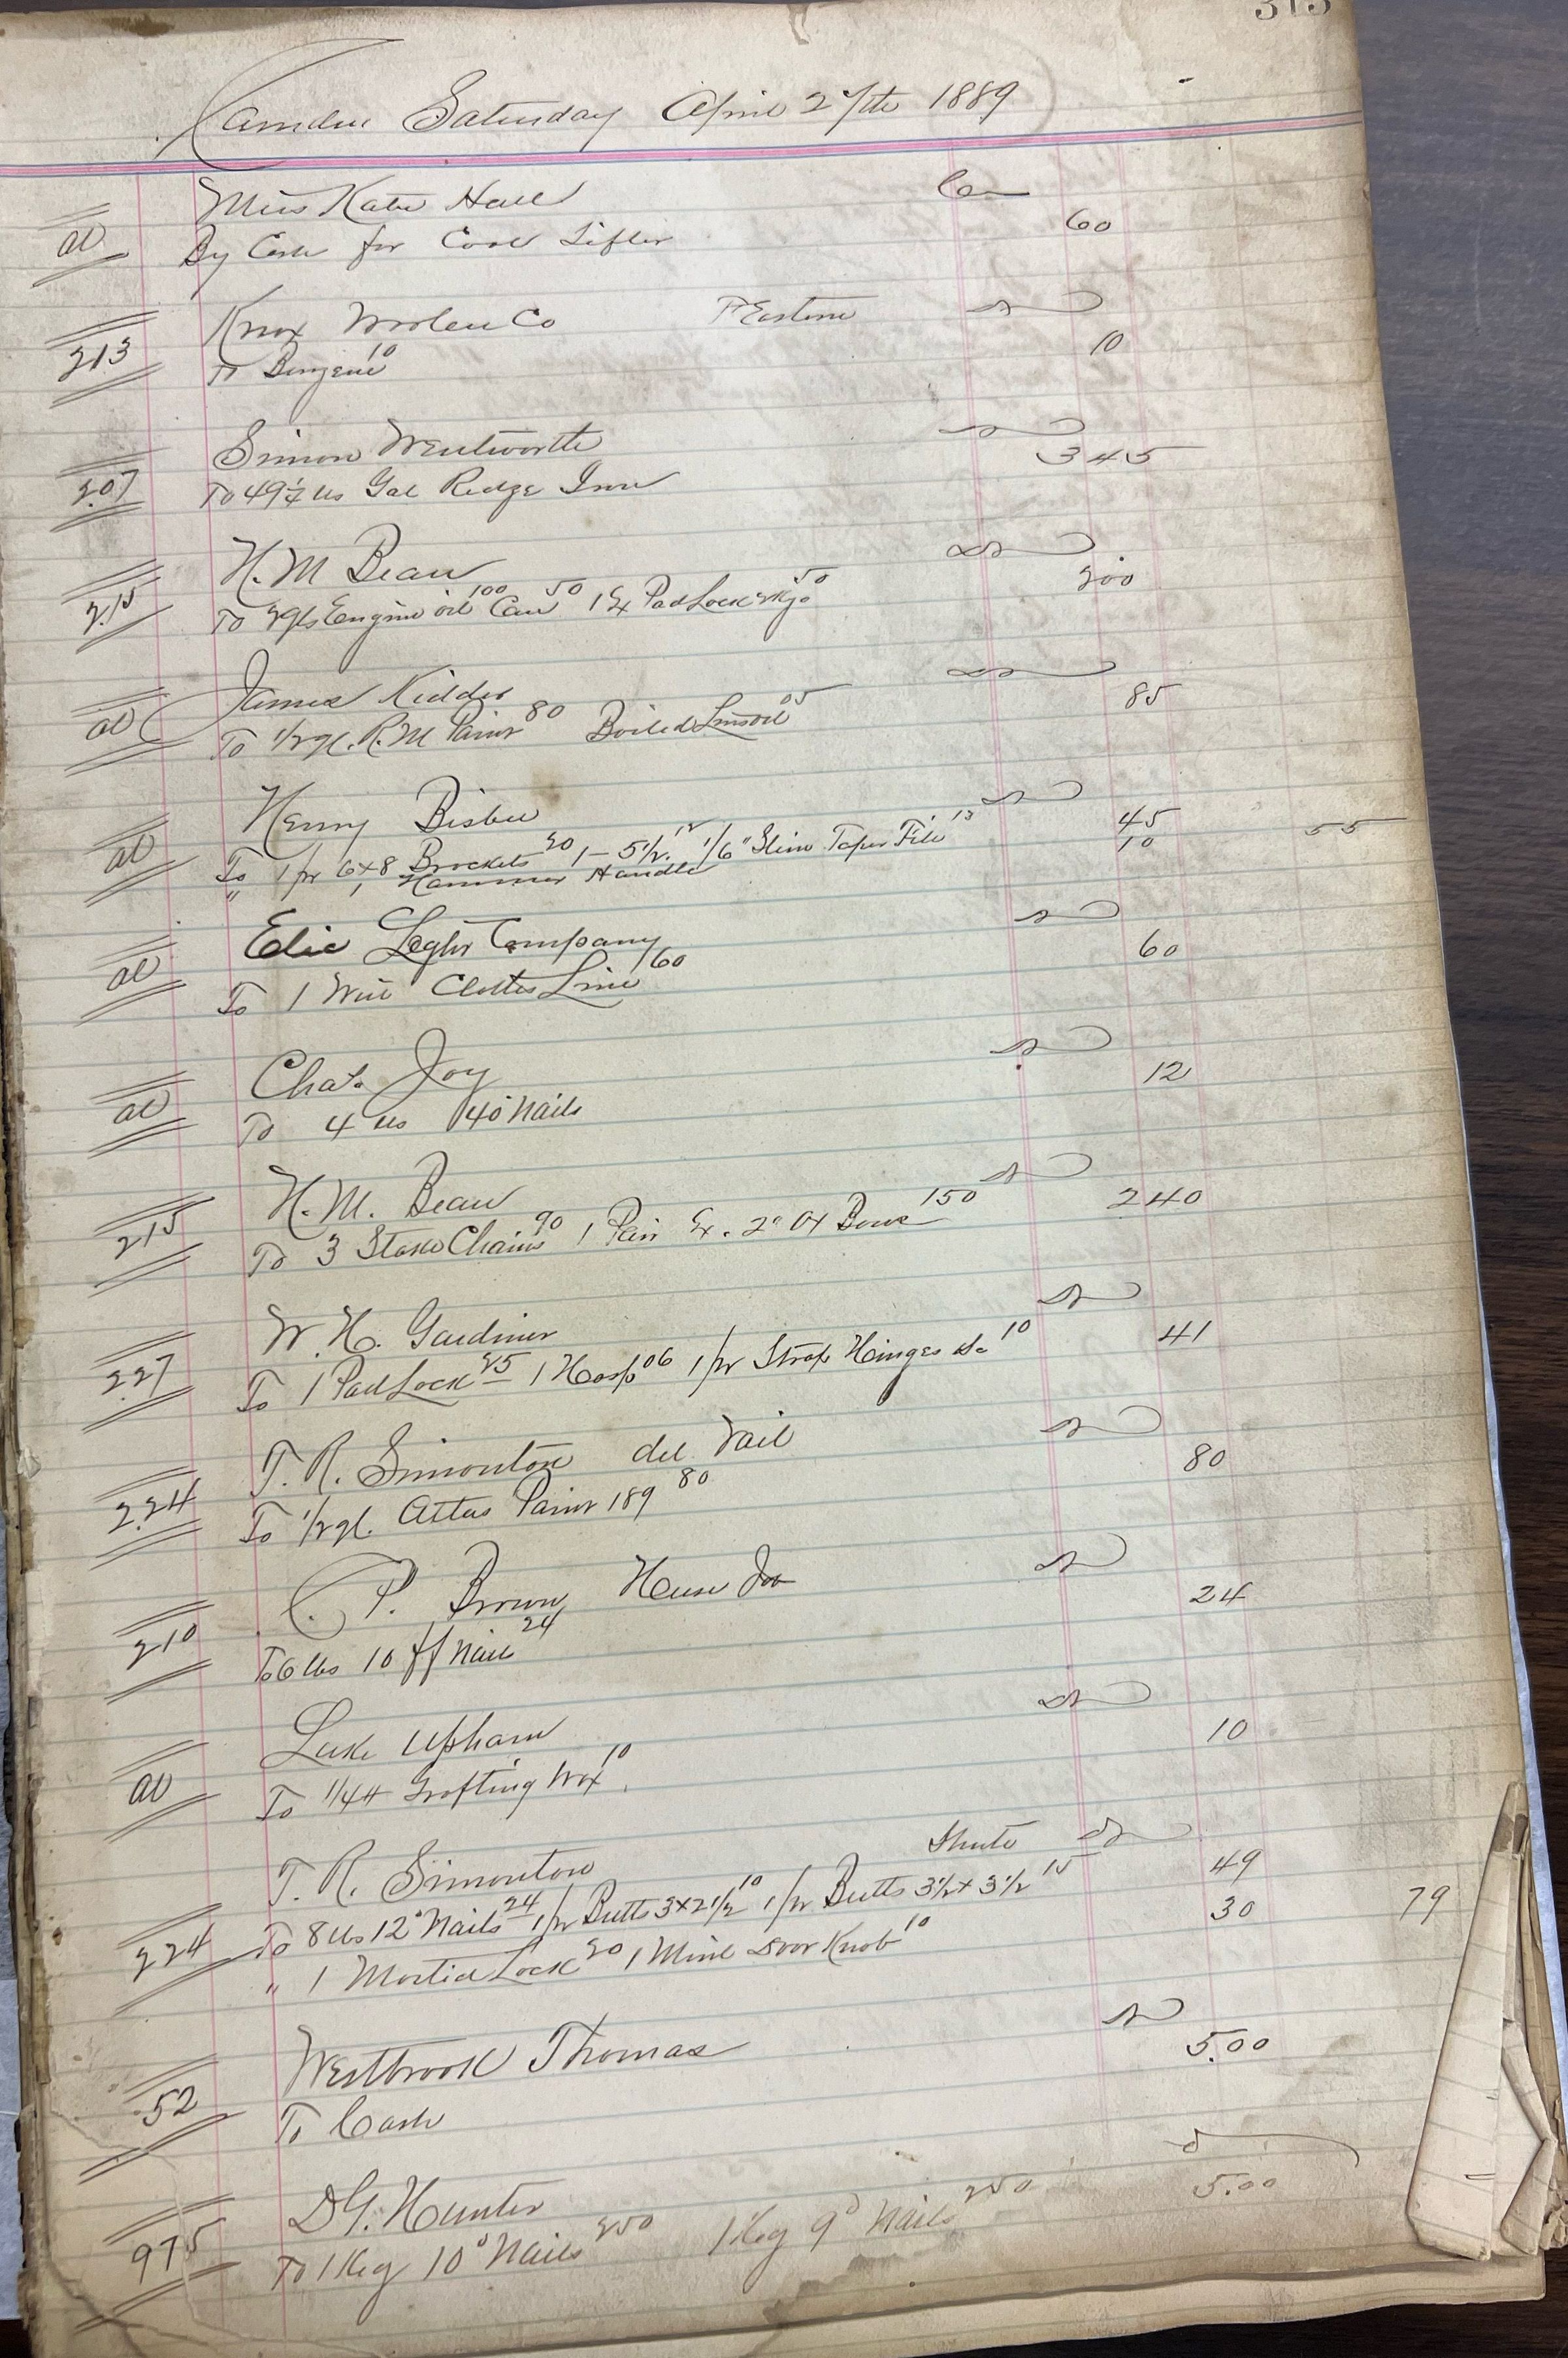 313
Camden Saturday April 27th 1889
Miss Kate Hall
60
By Cash for Coal Sifter
Knox Woolen Co
10
213
To Benzene 10
Simon Wentworth
345
207
To 49 1/4 lbs Gal Ridge Iron
H. M Bean
200
215
To 2 gls Engine oil 100 Can 50 1 Ex Pad Lock 50
James Kidder
85
To 1/2 gl. R. M Paint 80 Boiled Linsoil 05
Henry Bisbee
45 55
To 1 pr 6x8 Brackets 20 1 - 5 1/2. 12 1/6" Slim Taper File 13
10
" 1 Hammer Handle
Elic Light Company
60
To 1 Wire Clothes Line 60
Chas. Joy
12
To 4 lbs 40d Nails
H. M. Bean
240
215
To 3 Stake Chains 90 1 Pair Ex. 2" Ox Bows 150
W. H. Gardiner
41
227
To 1 Pad Lock 25 1 Hasp 06 1 pr Strap Hinges 10
T. R. Simonton
80
224
To 1/2 gl. Atlas Paint 189 80
C. P. Brown House Job
24
210
To 6 lbs 10 ff Nails 24
Luke Upham
10
To 1/4 # Grafting Wax 10
T. R. Simonton Shute
49
224
To 8 lbs 12d Nails 24 1 pr Butts 3x2 1/2 10 1 pr Butts 3 1/2 x 3 1/2 15
30 79
" 1 Mortice Lock 20 1 Minl Door Knob 10
Westbrook Thomas
5.00
52
To Cash
D G. Hunter
5.00
975
To 1 Keg 10d Nails 250 1 Keg 9d Nails 250